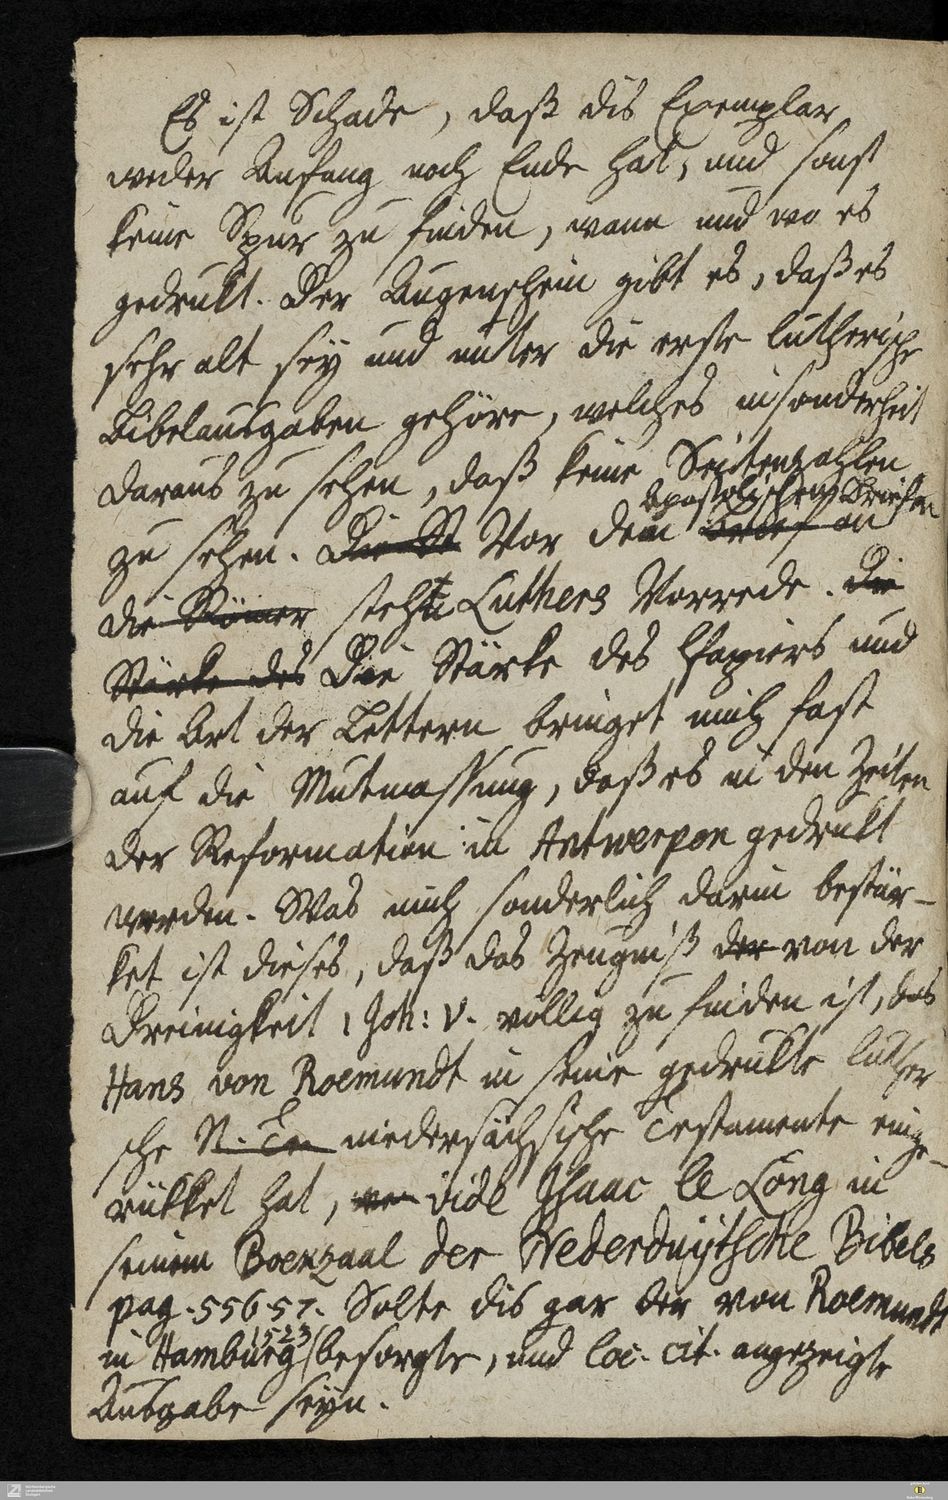 Es ist Schade, daß dis Exemplar
weder Anfang noch Ende hat, und sonst
keine Spur zu finden, wann und wo es
gedrukt. Der Augenschein gibt es, daß es
sehr alt sey und unter die erste lutherische
Bibelausgaben gehöre, welches insonderheit
daraus zu sehen, daß keine Seitenzahlen
apostolischen Briefen
zu sehen. Die St Vor dem Brief an
die Römer steht Luthers Vorrede. Die
Stärke des Die Stärke des Papiers und
die Art der Lettern bringet mich fast
auf die Mutmassung, daß es in den Zeiten
der Reformation in Antwerpen gedrukt
worden. Was mich sonderlich darin bestär-
ket ist dieses, daß das Zeugniß der von der
Dreinigkeit 1 Joh: V. völlig zu finden ist, das
Hans von Roemundt in seine gedrukte luther
sche N. Te niedersächsische Testamente einge-
rükket hat, vide Isaac le Long in
seinem Boekzaal der Nederduytsche Bibels
pag. 556.57. Solte dis gar der von Roemundt
1523
in Hamburg besorgte, und loc. cit. angezeigte
Ausgabe seyn.